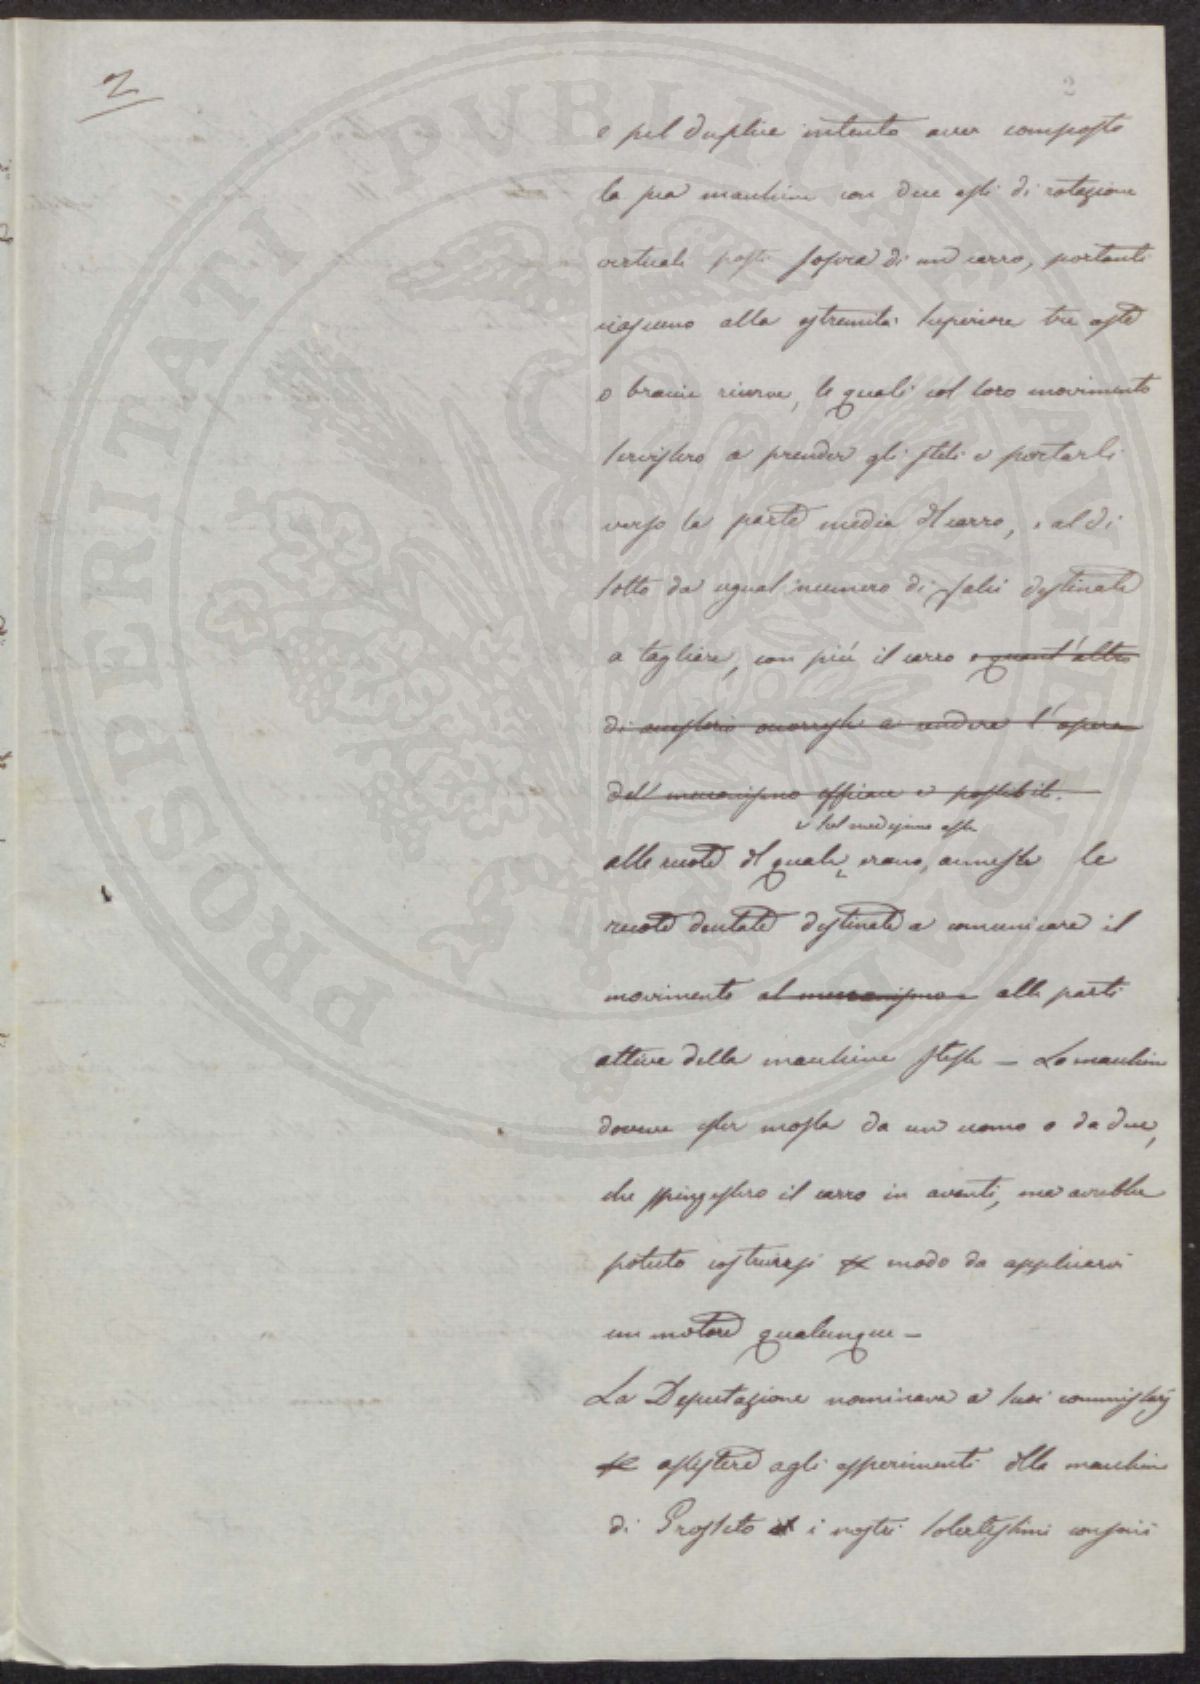 2
2
e pel duplice intento aver composto
la sua macchina con due assi di rotazione
verticali posti sopra di un carro, portanti
ciascuno alla estremità superiore tre aste
o braccia ricurve, le quali col loro movimento
servissero a prender gli steli e portarli
verso la parte media del carro, e al di
sotto da egual numero di falci destinate
a tagliare, con più il carro e quant'altro
di accessorio occorresse a rendere l'opera
del meccanismo efficace e possibile.
e sul medesimo asse
alle ruote del quale, erano, annesse le
ruote dentate destinate a comunicare il
movimento al meccanismo alle parti
attive della macchina stessa — La macchina
doveva esser mossa da un uomo o da due,
che spingessero il carro in avanti, ma avrebbe
potuto costruirsi modo da applicarvi
un motore qualunque —
La Deputazione nominava a suoi commissarj
assistere agli esperimenti della macchina
di i nostri solertissimi consocii
PROSPERITATI PUBLICAE AUGENDAE